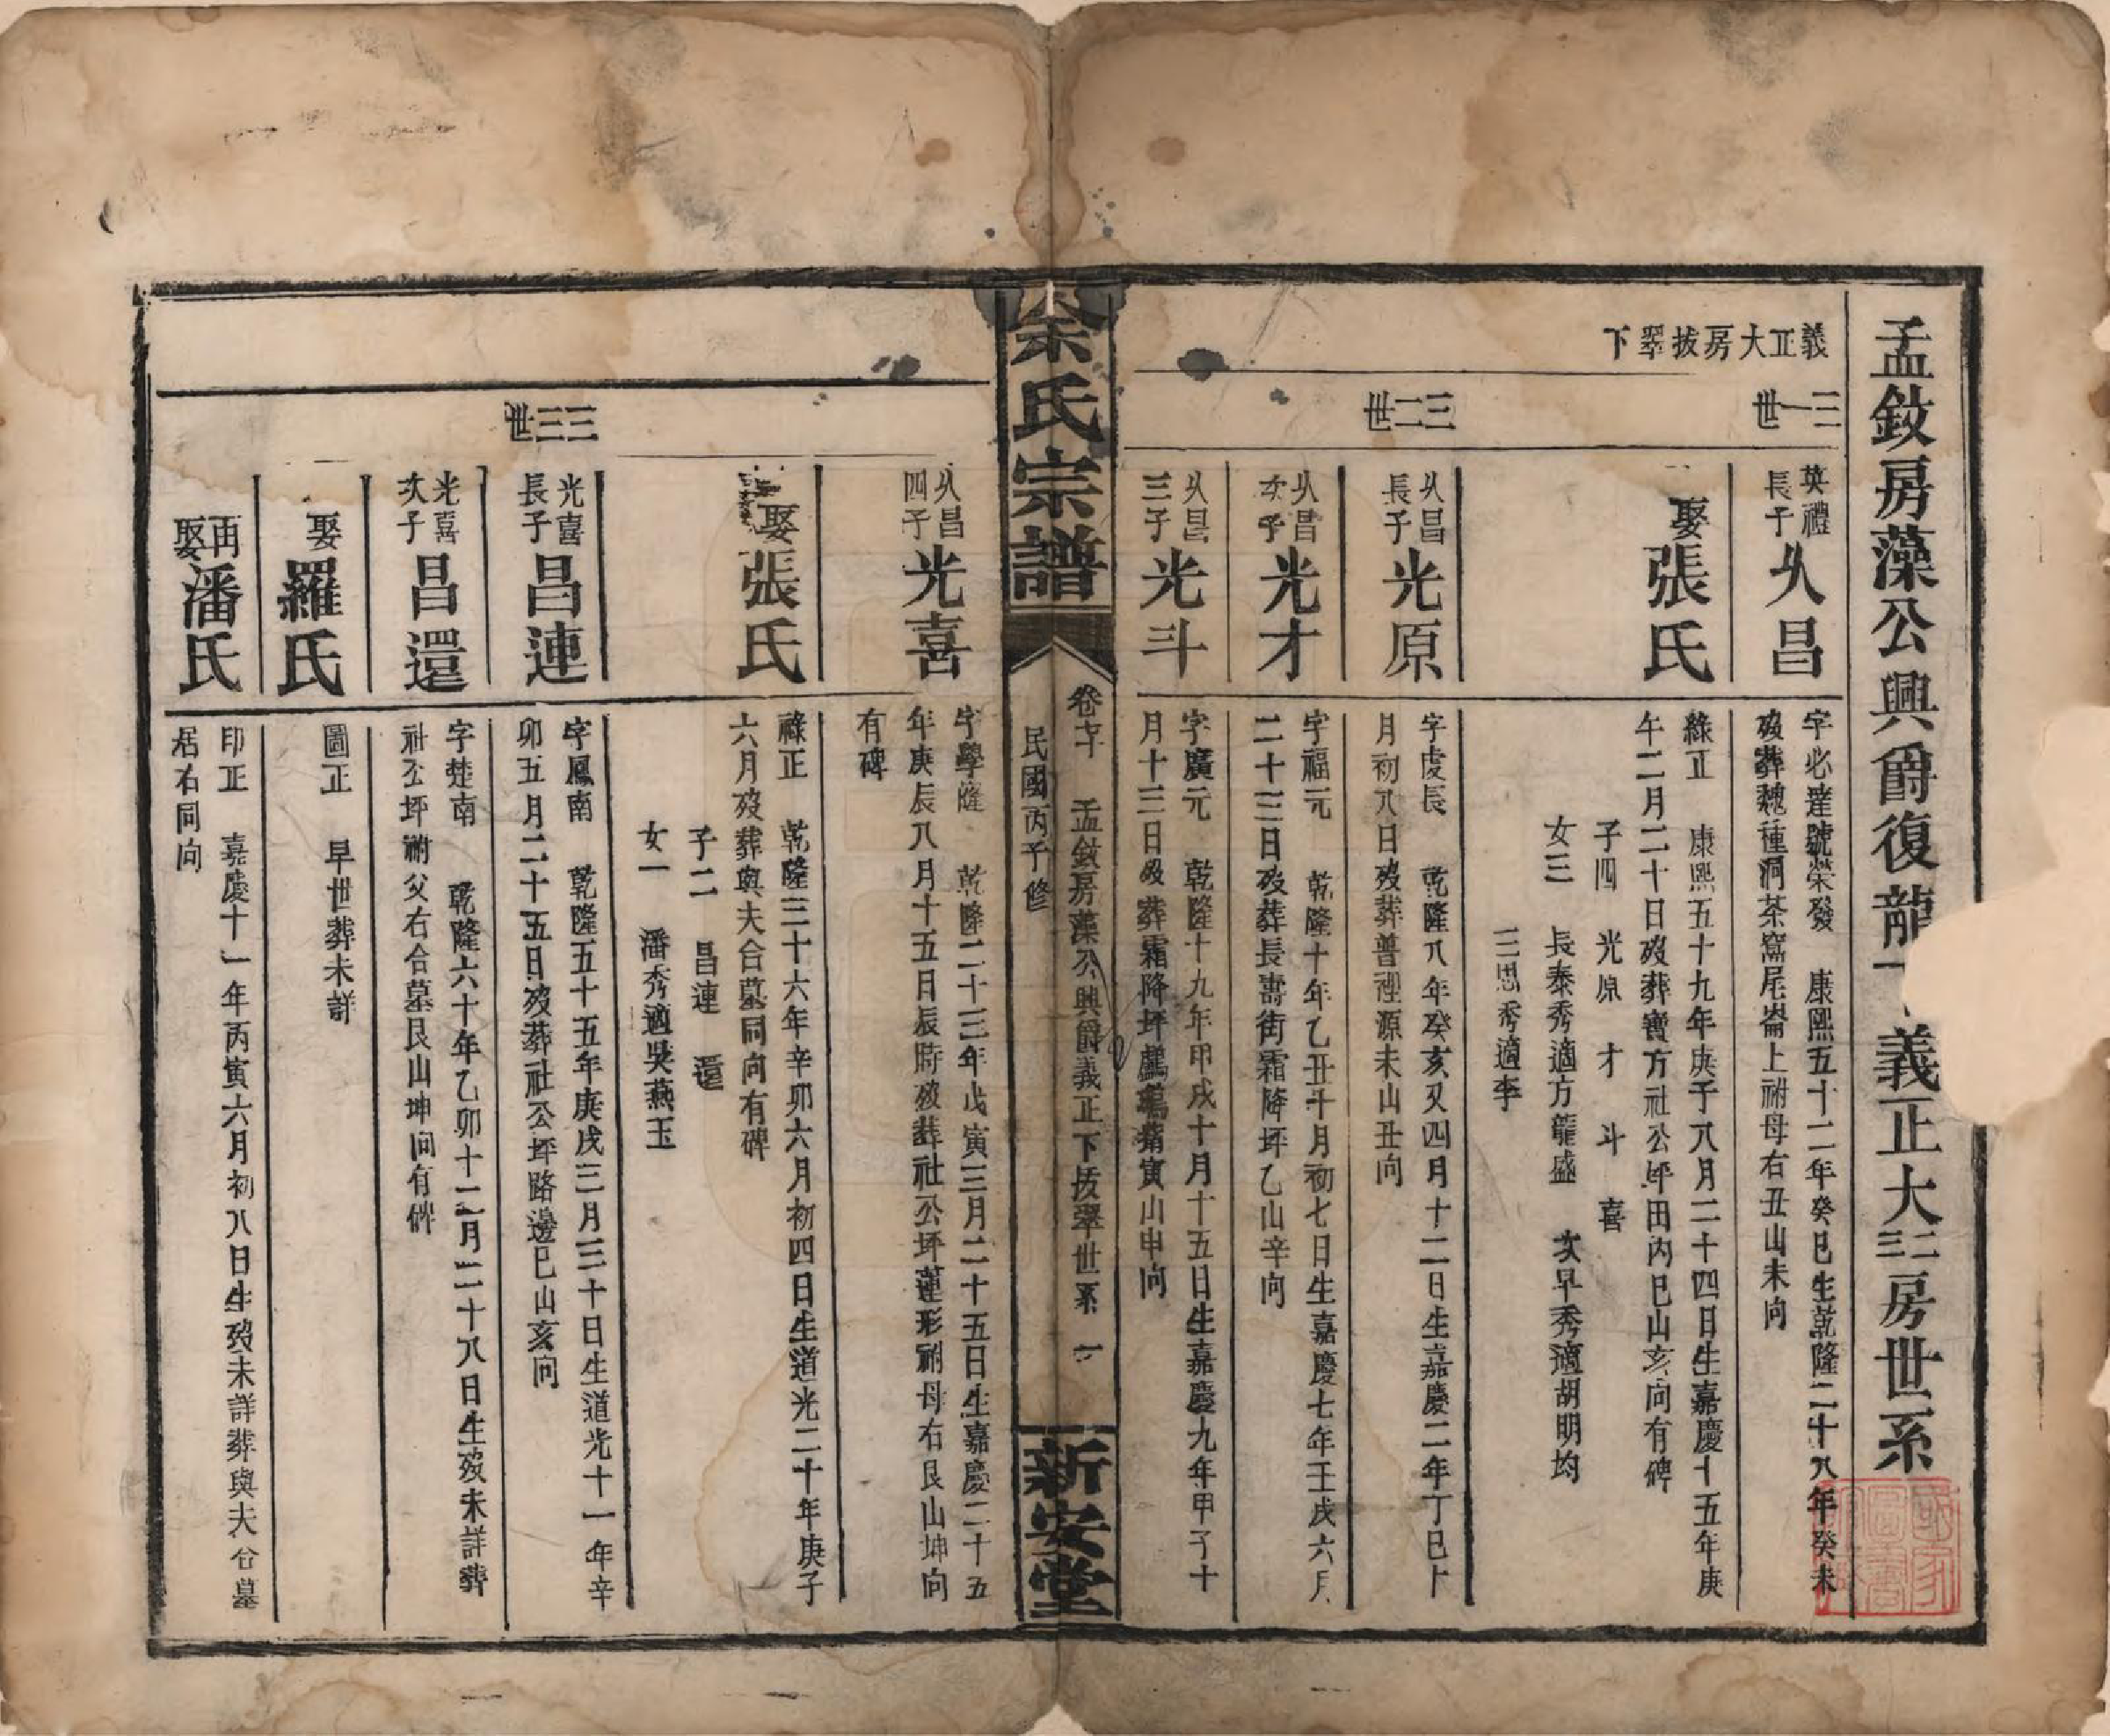 孟鈫房藻公興爵復龍 義正大二三房世系
義正大房拔翠下
三一世
英禮長子 以昌
字必達號榮發 康熙五十二年癸巳生乾隆二十八年癸未
歿葬魏種洞茶窩尾崙上祔母右丑山未向
娶張氏
緣正 康熙五十九年庚子八月二十四日生嘉慶十五年庚
午二月二十日歿葬寶方社公坪田內巳山亥向有碑
子四 光原 才 斗 喜
女三 長泰秀適方龍盛 次早秀適胡明均
三思秀適李
三二世
以昌長子 光原
字虔長 乾隆八年癸亥又四月十二日生嘉慶二年丁巳
月初八日歿葬普裡源未山丑向
以昌次子 光才
字福元 乾隆十年乙丑十月初七日生嘉慶七年壬戌六月
二十三日歿葬長壽街霜降坪乙山辛向
以昌三子 光斗
字廣元 乾隆十九年甲戌十月十五日生嘉慶九年甲子十
月十三日歿葬霜降坪 寅山申向
宗氏宗譜
卷十 孟鈫房藻公興爵義正下拔翠世系 一
民國丙子修
新安堂
以昌四子 光喜
字學隆 乾隆二十三年戊寅三月二十五日生嘉慶二十五
年庚辰八月十五日辰時歿葬社公坪蓮形祔母右艮山坤向
有碑
娶張氏
祿正 乾隆三十六年辛卯六月初四日生道光二十年庚子
六月歿葬與夫合墓同向有碑
子二 昌連 還
女一 潘秀適吳燕玉
三三世
光喜長子 昌連
字鳳南 乾隆五十五年庚戌三月三十日生道光十一年辛
卯五月二十五日歿葬社公坪路邊巳山亥向
光喜次子 昌還
字楚南 乾隆六十年乙卯十二月二十八日生歿未詳葬
社公坪祔父右合墓艮山坤向有碑
娶羅氏
圖正 早世葬未詳
再娶潘氏
印正 嘉慶十一年丙寅六月初八日生歿未詳葬與夫合墓
居右同向